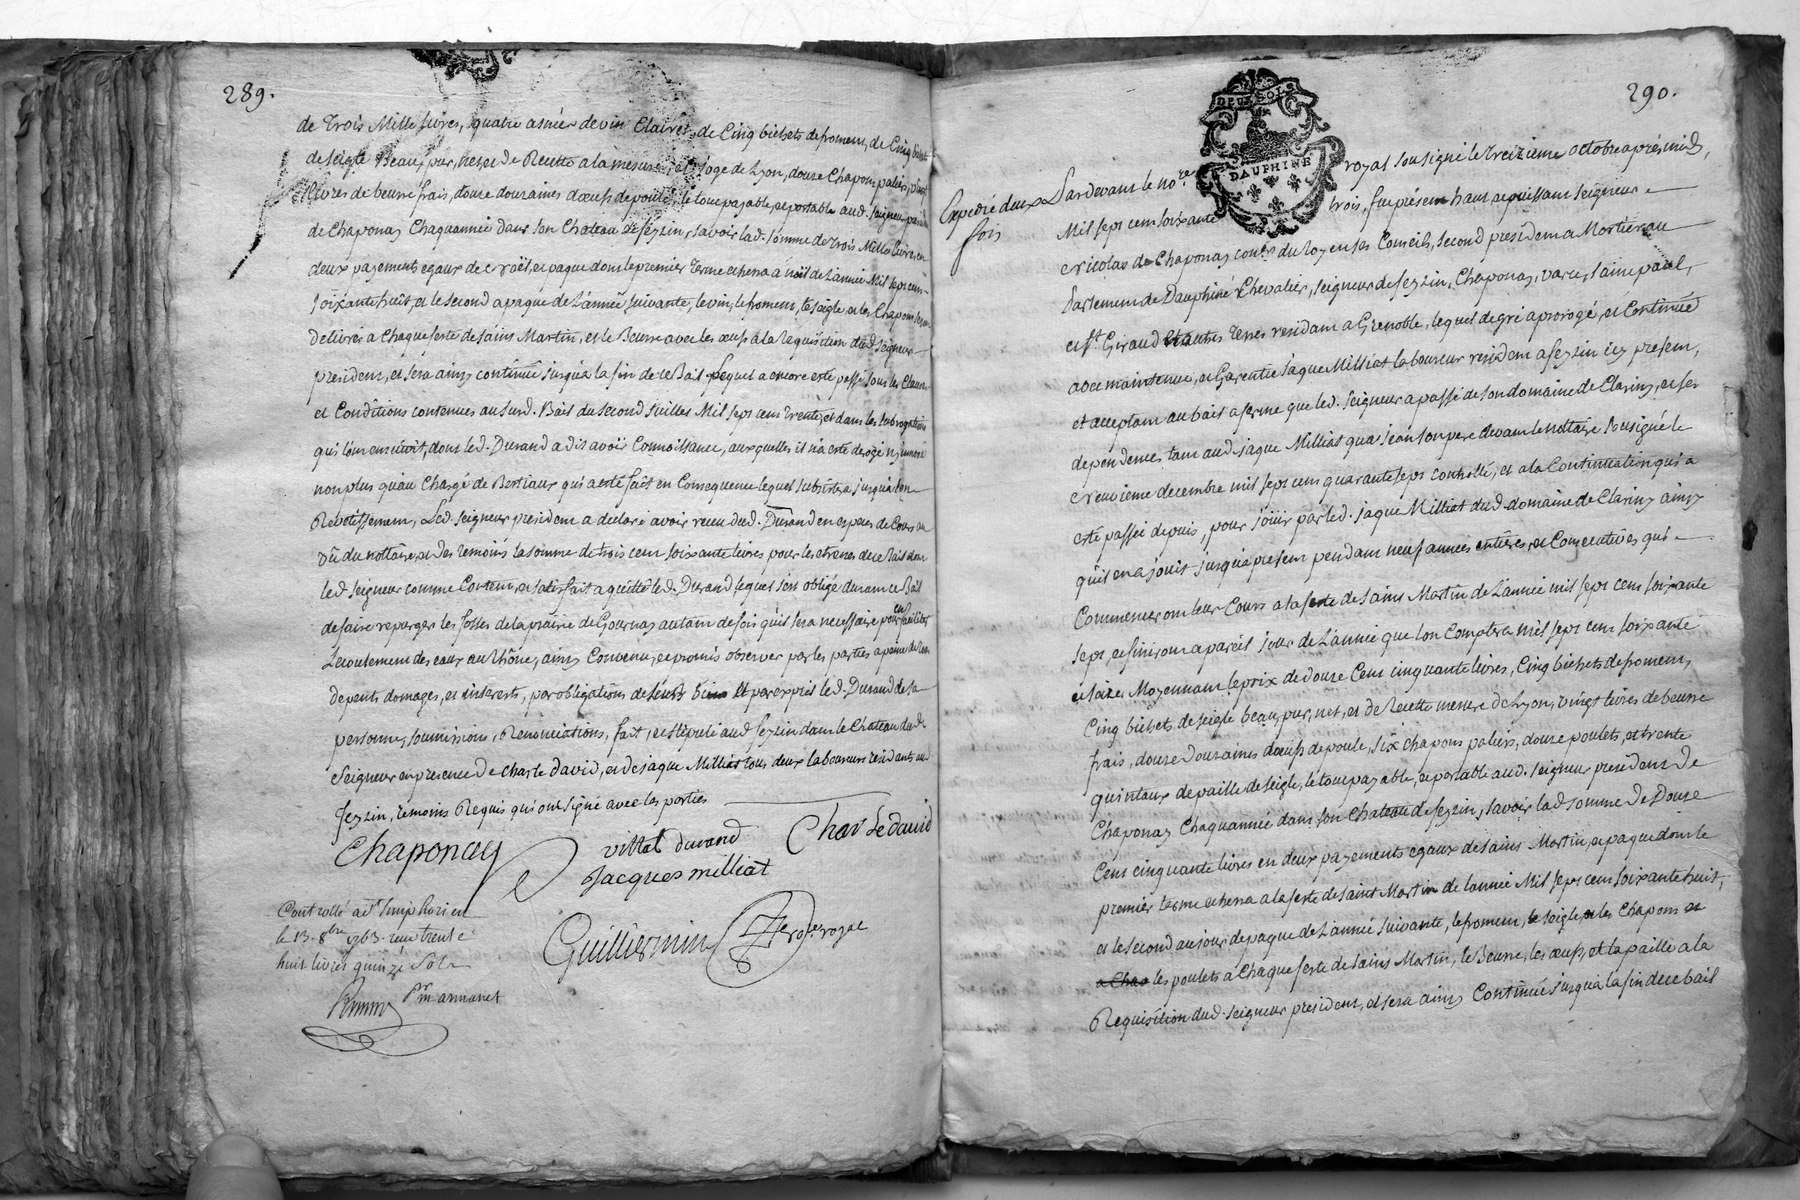 289.
de Trois Mille livres, quatre asnées de vin Clairet, de Cinq bichets de froment, de Cinq bichets
de seigle Beau, pur, net et de Recette a la mesure, de Lyon, douze Chapons paliers, vingt
livres de beurre frais, douze douzaines d'oeufs de poule, le tout payable, et portable aud. Seigneur president
de Chaponay Chaquannée dans son Chateau de feyzin, savoir lad. somme de Trois Mille livres en
deux payements egaux de noël, et paque dont le premier Terme echerra a noël de Lannée Mil sept cent
soixante huit, et le second a paque de Lannée suivante, le vin, le froment, le seigle, et les Chapons seront
delivrés a Chaque feste de saint Martin, et le Beurre avec les oeufs a la Requisition dud. Seigneur
president, et sera ainsy continüé jusqu'a la fin de ce Bail Lequel a encore esté passé sous les Clauses
et Conditions contenues au susd. Bail du second Juillet Mil sept cent Trente, et dans les subrogations
qui l'ont ensuivit, dont led. Durand a dit avoir Connoissance, auxquelles il n'a esté derogé ny innové
non plus qu'au Chargé de Bestiaux qui a esté fait en Consequence lequel subsistera jusqu'a son
Rebatissement, Led. seigneur president a declaré avoir receu dud. Durand en especes de Cours au
Vû du nottaire, et des temoins la somme de trois cent soixante livres pour les etrenes de ce Bail dont
led. seigneur comme Content, et satisfait a quitté led. Durand lequel s'est obligé durant ce Bail
de faire repurger les fosses de la prairie de Gournay autant de fois qu'il sera necessaire pour en faciliter
Lecoulement des eaux au Rhône, ainsy Convenu, et promis observer par les parties a peine de tous
depents domages, et interests, par obligations de leurs biens et par exprès led. Durand de sa
personne, soumissions, Renonciations, fait, et stipulé aud. feyzin dans le Chateau dud.
Seigneur en presence de Charle david, et de jaque Milliat tous deux laboureurs residants aud.
feyzin, temoins Requis qui ont signé avec les parties
Chaponay
vittal durand
Charle dauid
Jacques milliat
Guilliermin
no.re royal
Controllé a St Simphorien
le 13. 8bre 1763. reçu trente
huit livres quinze Sols
290.
DEUX SOLS
DAUPHINE
Expedié deux
fois
Pardevant le no.re royal sousigné le Treizieme octobre après midy,
Mil sept cent soixante trois, fut présent haut et puissant seigneur
Nicolas de Chaponay cons.er du Roy en ses Conseils, second president a Mortier au
Parlement de Dauphiné Chevalier, seigneur de feyzin, Chaponay, vare, saint paul,
et St Giraud et autres Terres residant a Grenoble, lequel de gré a prorogé, et Continüé
avec maintenüe, et Garentie a jaque Milliat laboureur resident a feyzin icy present,
et acceptant au bail a ferme que led. Seigneur a passé de son domaine de Clariny, et ses
dependences tant aud. jaque Milliat qu'a jean son pere devant le nottaire sousigné le
Neuvieme decembre mil sept cent quarante sept controllé, et a la Continuation qui a
esté passée depuis, pour jouir par led. jaque Milliat dud. domaine de Clariny ainsy
qu'il en a jouit jusqu'a present pendant neuf années entieres, et Consecutives qui
Commenceront leur Cours a la feste de saint Martin de Lannée mil sept cent soixante
sept, et finiront a pareil jour de Lannée que lon Comptera mil sept cent soixante
et saize, Moyennant le prix de douze Cent cinquante livres, Cinq bichets de froment,
Cinq bichets de seigle beau, pur, net, et de Recette mesure de Lyon, vingt livres de beurre
frais, douze douzaines d'oeufs de poule, six chapons paliers, douze poulets, et trente
quintaux de paille de seigle, le tout payable, et portable aud. seigneur president de
Chaponay Chaquannée dans son Chateau de feyzin, savoir lad. somme de Douze
Cent cinquante livres en deux payements egaux de saint Martin, et paque dont le
premier terme echerra a la feste de saint Martin de lannée Mil sept cent soixante huit,
et le second au jour de paque de Lannée suivante, le froment, le seigle et les Chapons et
a Chac les poulets a Chaque feste de saint Martin, le Beurre, les oeufs, et la paille a la
Requisition dud. seigneur president, et sera ainsy Continüé jusqu'a la fin de ce bail